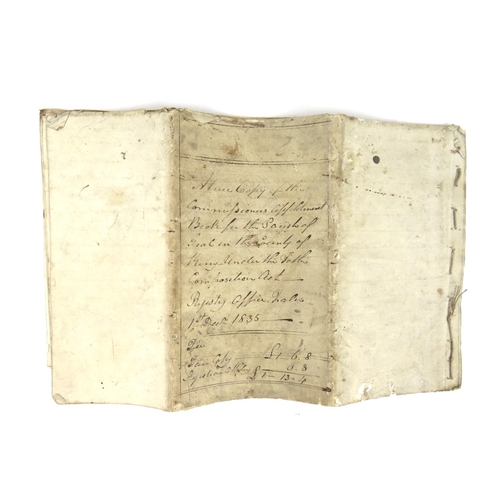 A true Copy of the
Commissioners Applotment
Book for the Parish of
in the County of
Kerry Under the Tithe
Composition Act
Registry Office Tralee
1st Decr 1835
Fee
Fair Copy £1-6.8
6.8
£1-13-4